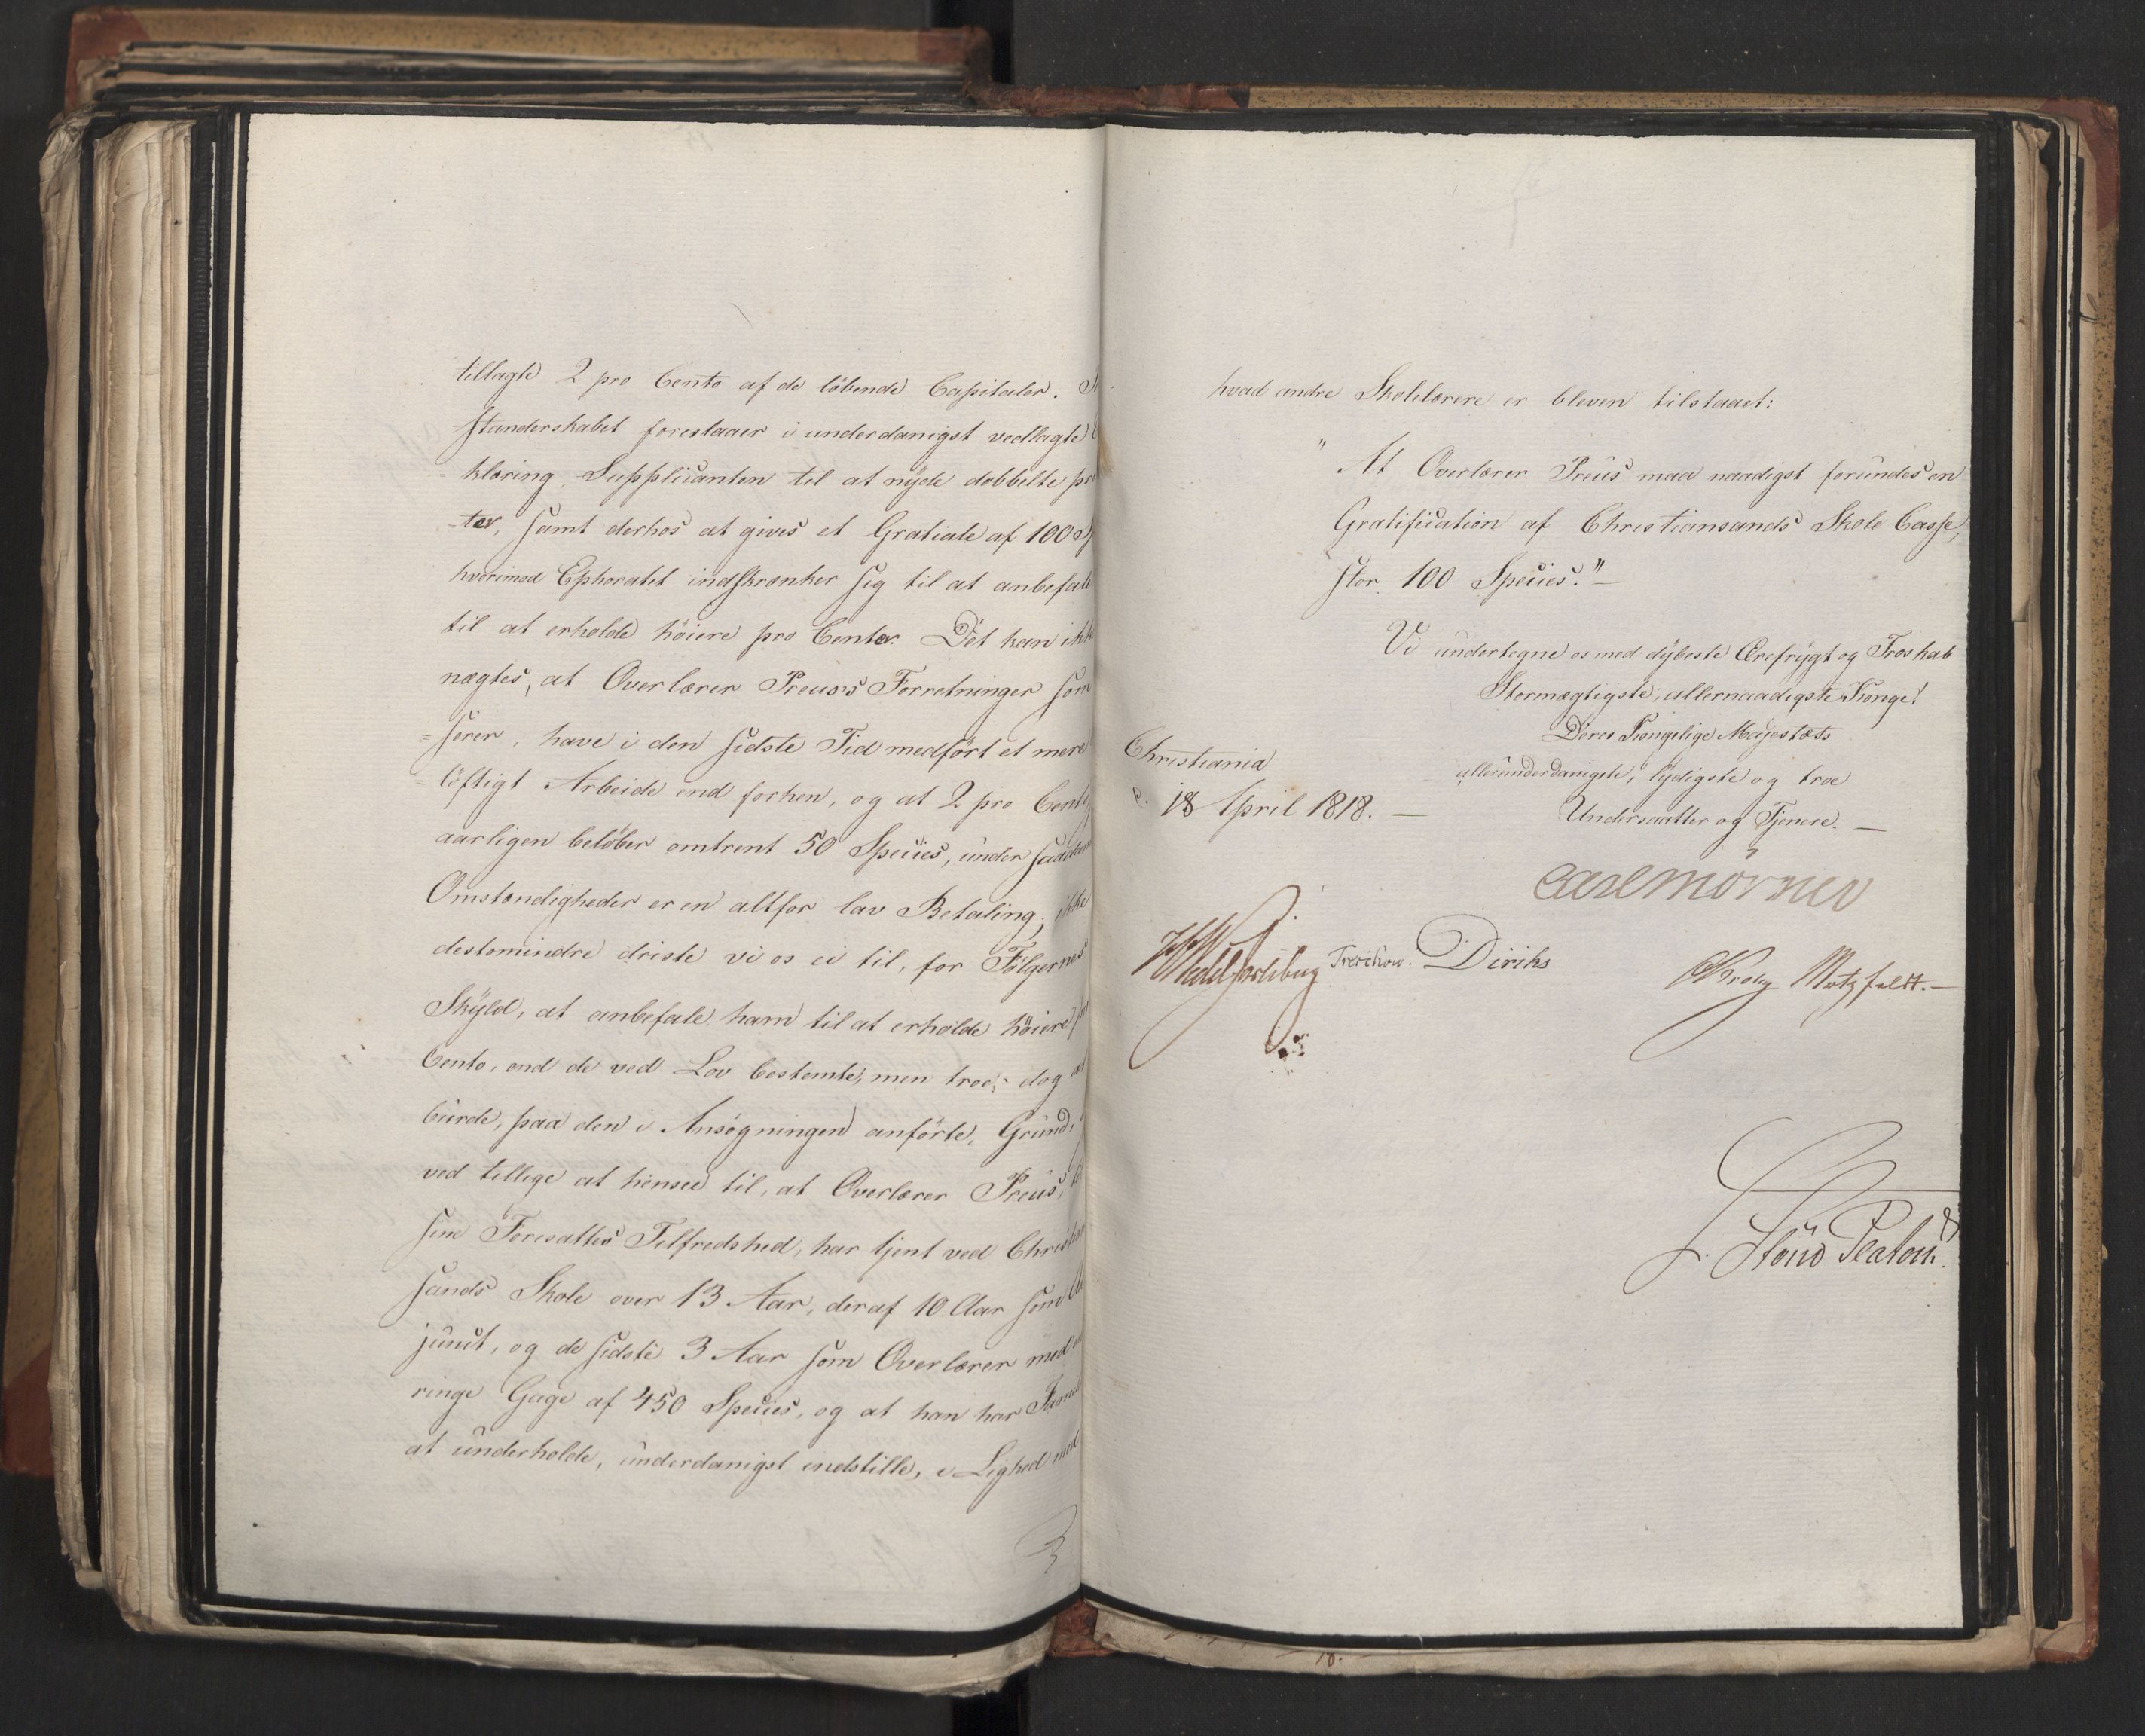 tillagte 2 pro Cento af de löbende Capitaler.
standerskabet foreslaaer i underdanigst vedlagte
klæring, Supplicanten til at nyde dobbelte pro
ter, samt derhos at gives et Gratiale af 100 Sp
hvorimod Ephoratet indskrænker sig til at anbefale
til at erholde höiere pro Center. Det kan ikke
nægtes, at Overlærer Preus's Forretninger som
=sörer, have i den sidste Tid medfört et mere
=löftigt Arbeide end forhen, og at 2 pro Cento
aarligen belöber omtrent 50 Species, under saadan
Omstændigheder er en altfor lav Betaling; ikke
destomindre driste vi os ei til, for Fölgernes
Skyld, at anbefale ham til at erholde höiere
Cento, end de ved Lov bestemte, men troe dog at
burde, paa den i Ansögningen anförte Grund,
ved tillige at hensee til, at Overlærer Preus,
sine Foresattes Tilfredshed, har tjent ved Christian
sands Skole over 13 Aar, deraf 10 Aar som
junct, og de sidste 3 Aar som Overlærer med
ringe Gage af 450 Species, og at han har
at underholde, underdanigst indstille, i Lighed med
hvad andre Skolelærere er bleven tilstaaet:
"At Overlærer Preus maa naadigst forundes en
Gratification af Christiansands Skole Casse,
stor 100 Species."—
Vi undertegne os med dybeste Ærefrygt og Troskab
Stormægtigste, allernaadigste Konge!
Deres Kongelige Majestæts
allerunderdanigste, lydigste og troe
Undersaatter og Tjenere. —
Christiania
d. 18 April 1818. —
Carl Mörner
HWedel Jarlsberg Treschow. Diriks Krog Motzfeldt.—
Höuo Platou
18.